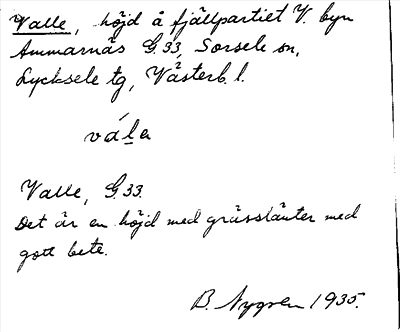 Valle, höjd å fjällpartiet V. byn
Ammarnäs G.33, Sorsele sn,
Lycksele tg, Västerb. l.
vál̲a
Valle, G.33.
Det är en höjd med grässlänter med
gott bete.
B. Nygren 1935.